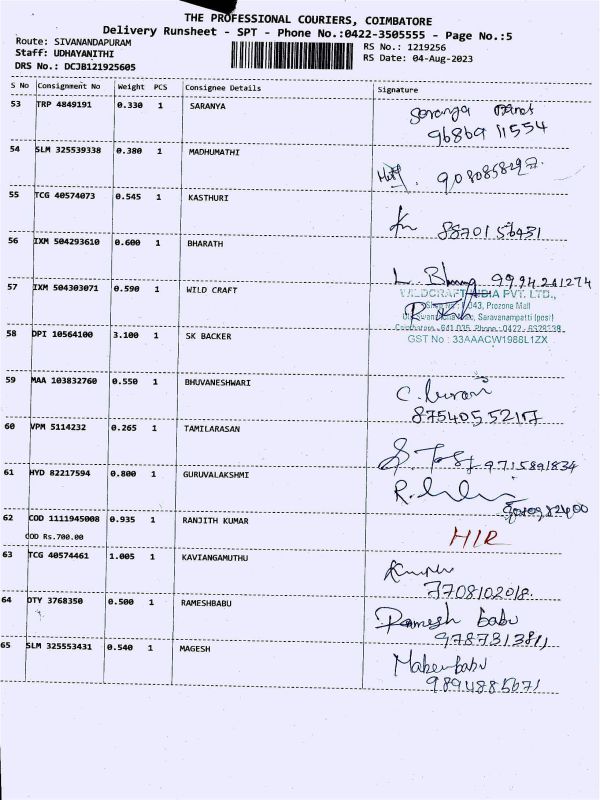 THE PROFESSIONAL COURIERS, COIMBATORE
Delivery Runsheet - SPT - Phone No.:0422-3505555 - Page No.:5
Route: SIVANANDAPURAM
RS No.: 1219256
Staff: UDHAYANITHI
RS Date: 04-Aug-2023
DRS No.: DCJB121925605
S No Consignment No Weight PCS Consignee Details Signature
53 TRP 4849191 0.330 1 SARANYA
9686911554
54 SLM 325539338 0.380 1 MADHUMATHI
55 TCG 40574073 0.545 1 KASTHURI
56 IXM 504293610 0.600 1 BHARATH
57 IXM 504303071 0.590 1 WILD CRAFT
WILDCRAFT INDIA PVT. LTD.,
043, Prozone Mall
Saravanampatti (post)
Coimbatore - 641 035. Phone : 0422
GST No : 33AAACW1988L1ZX
58 DPI 10564100 3.100 1 SK BACKER
59 MAA 103832760 0.550 1 BHUVANESHWARI
60 VPM 5114232 0.265 1 TAMILARASAN
9715891834
61 HYD 82217594 0.800 1 GURUVALAKSHMI
62 COD 1111945008 0.935 1 RANJITH KUMAR
COD Rs.700.00
H/R
63 TCG 40574461 1.005 1 KAVIANGAMUTHU
7708102018.
64 DTY 3768350 0.500 1 RAMESHBABU
Ramesh babu
65 SLM 325553431 0.540 1 MAGESH